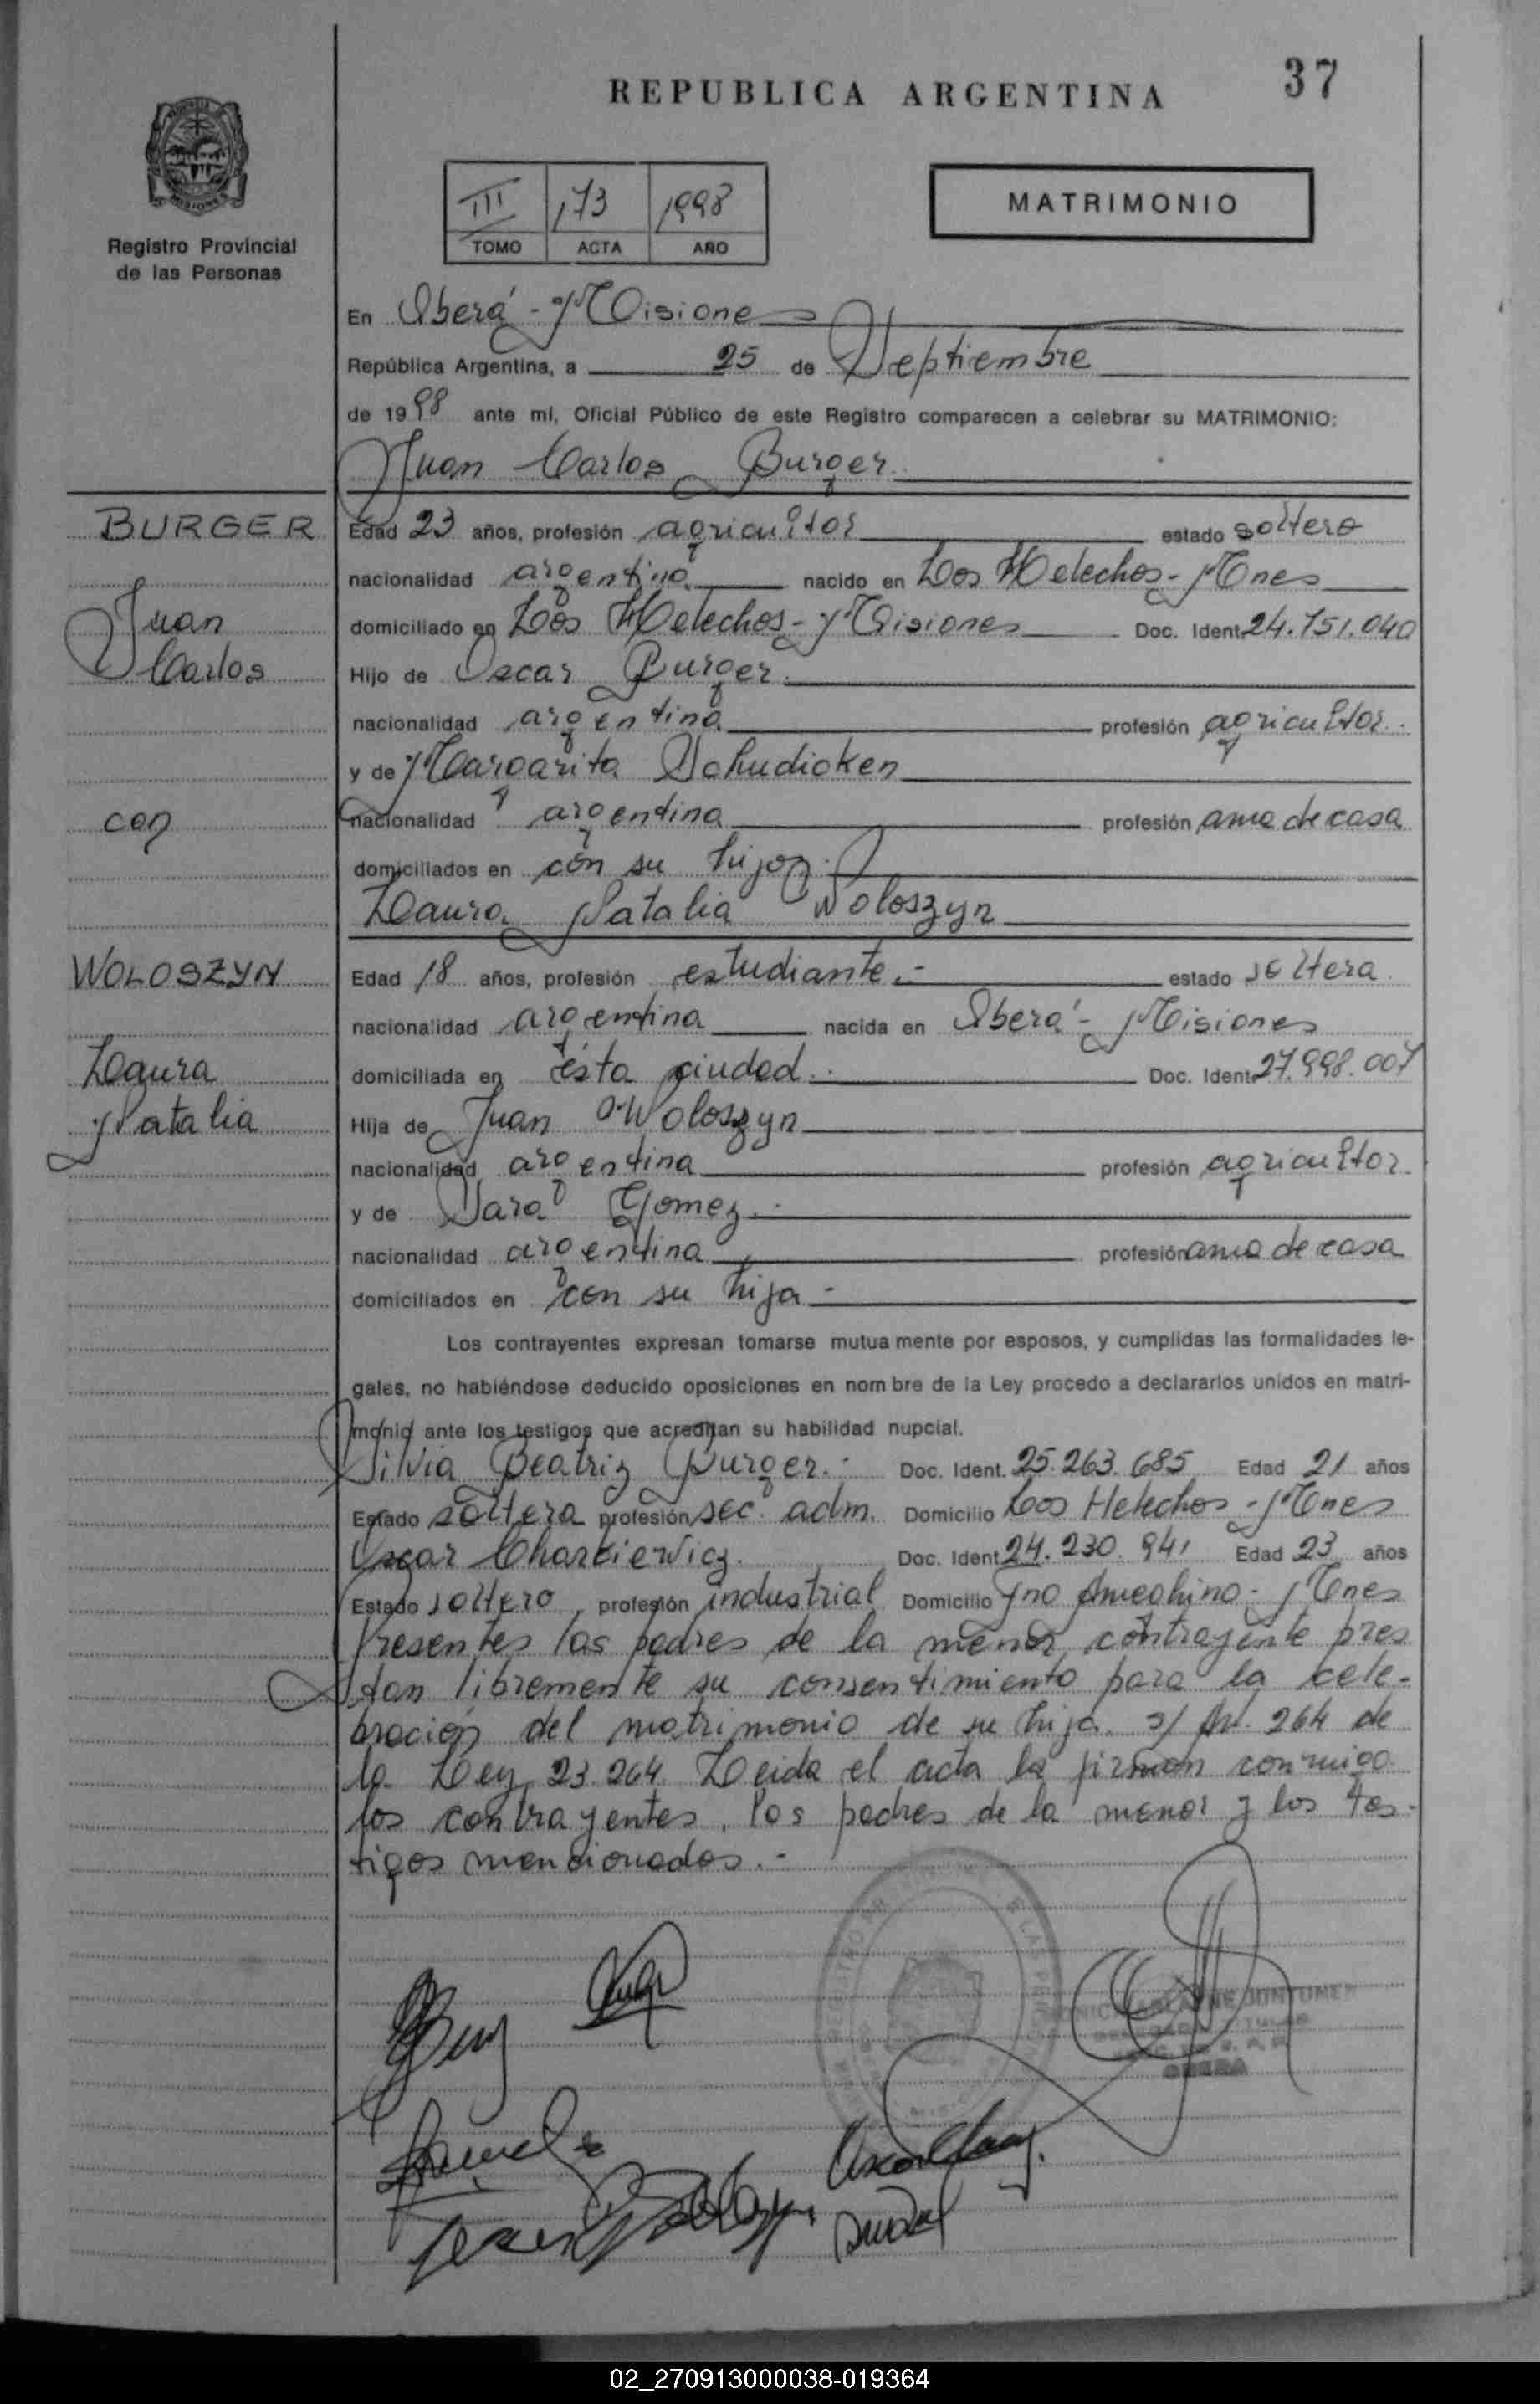 37
REPUBLICA ARGENTINA
MISIONES
Registro Provincial
de las Personas
III 173 1998
TOMO ACTA AÑO
MATRIMONIO
En Oberá - Misiones
República Argentina, a 25 de Septiembre
de 1998 ante mí, Oficial Público de este Registro comparecen a celebrar su MATRIMONIO:
Juan Carlos Burger
BURGER
Juan
Carlos
con
WOLOSZYN
Laura
Natalia
Edad 23 años, profesión agricultor estado soltero
nacionalidad argentina nacido en Los Helechos - Mnes
domiciliado en Los Helechos - Misiones Doc. Ident. 24.751.040
Hijo de Oscar Burger
nacionalidad argentina profesión agricultor
y de Margarita Schudicken
nacionalidad argentina profesión ama de casa
domiciliados en con su hijo
Laura Natalia Woloszyn
Edad 18 años, profesión estudiante.- estado soltera
nacionalidad argentina nacida en Oberá - Misiones
domiciliada en ésta ciudad.- Doc. Ident. 27.998.007
Hija de Juan Woloszyn
nacionalidad argentina profesión agricultor
y de Sara Gomez.-
nacionalidad argentina profesión ama de casa
domiciliados en con su hija -
Los contrayentes expresan tomarse mutua mente por esposos, y cumplidas las formalidades le-
gales, no habiéndose deducido oposiciones en nom bre de la Ley procedo a declararlos unidos en matri-
monio ante los testigos que acreditan su habilidad nupcial.
Silvia Beatriz Burger.- Doc. Ident. 25.263.685 Edad 21 años
Estado soltera profesión sec. adm. Domicilio Los Helechos - Mnes
Oscar Doc. Ident. 24.230.941 Edad 23 años
Estado soltero profesión industrial Domicilio Fno Ameghino - Mnes
Presentes los padres de la menor contrayente pres
tan libremente su consentimiento para la cele-
bración del matrimonio de su hija. s/ Art. 264 de
la Ley 23.264. Leida el acta la firman conmigo
los contrayentes, los padres de la menor y los tes-
tigos mencionados.-
OBERA
02_270913000038-019364